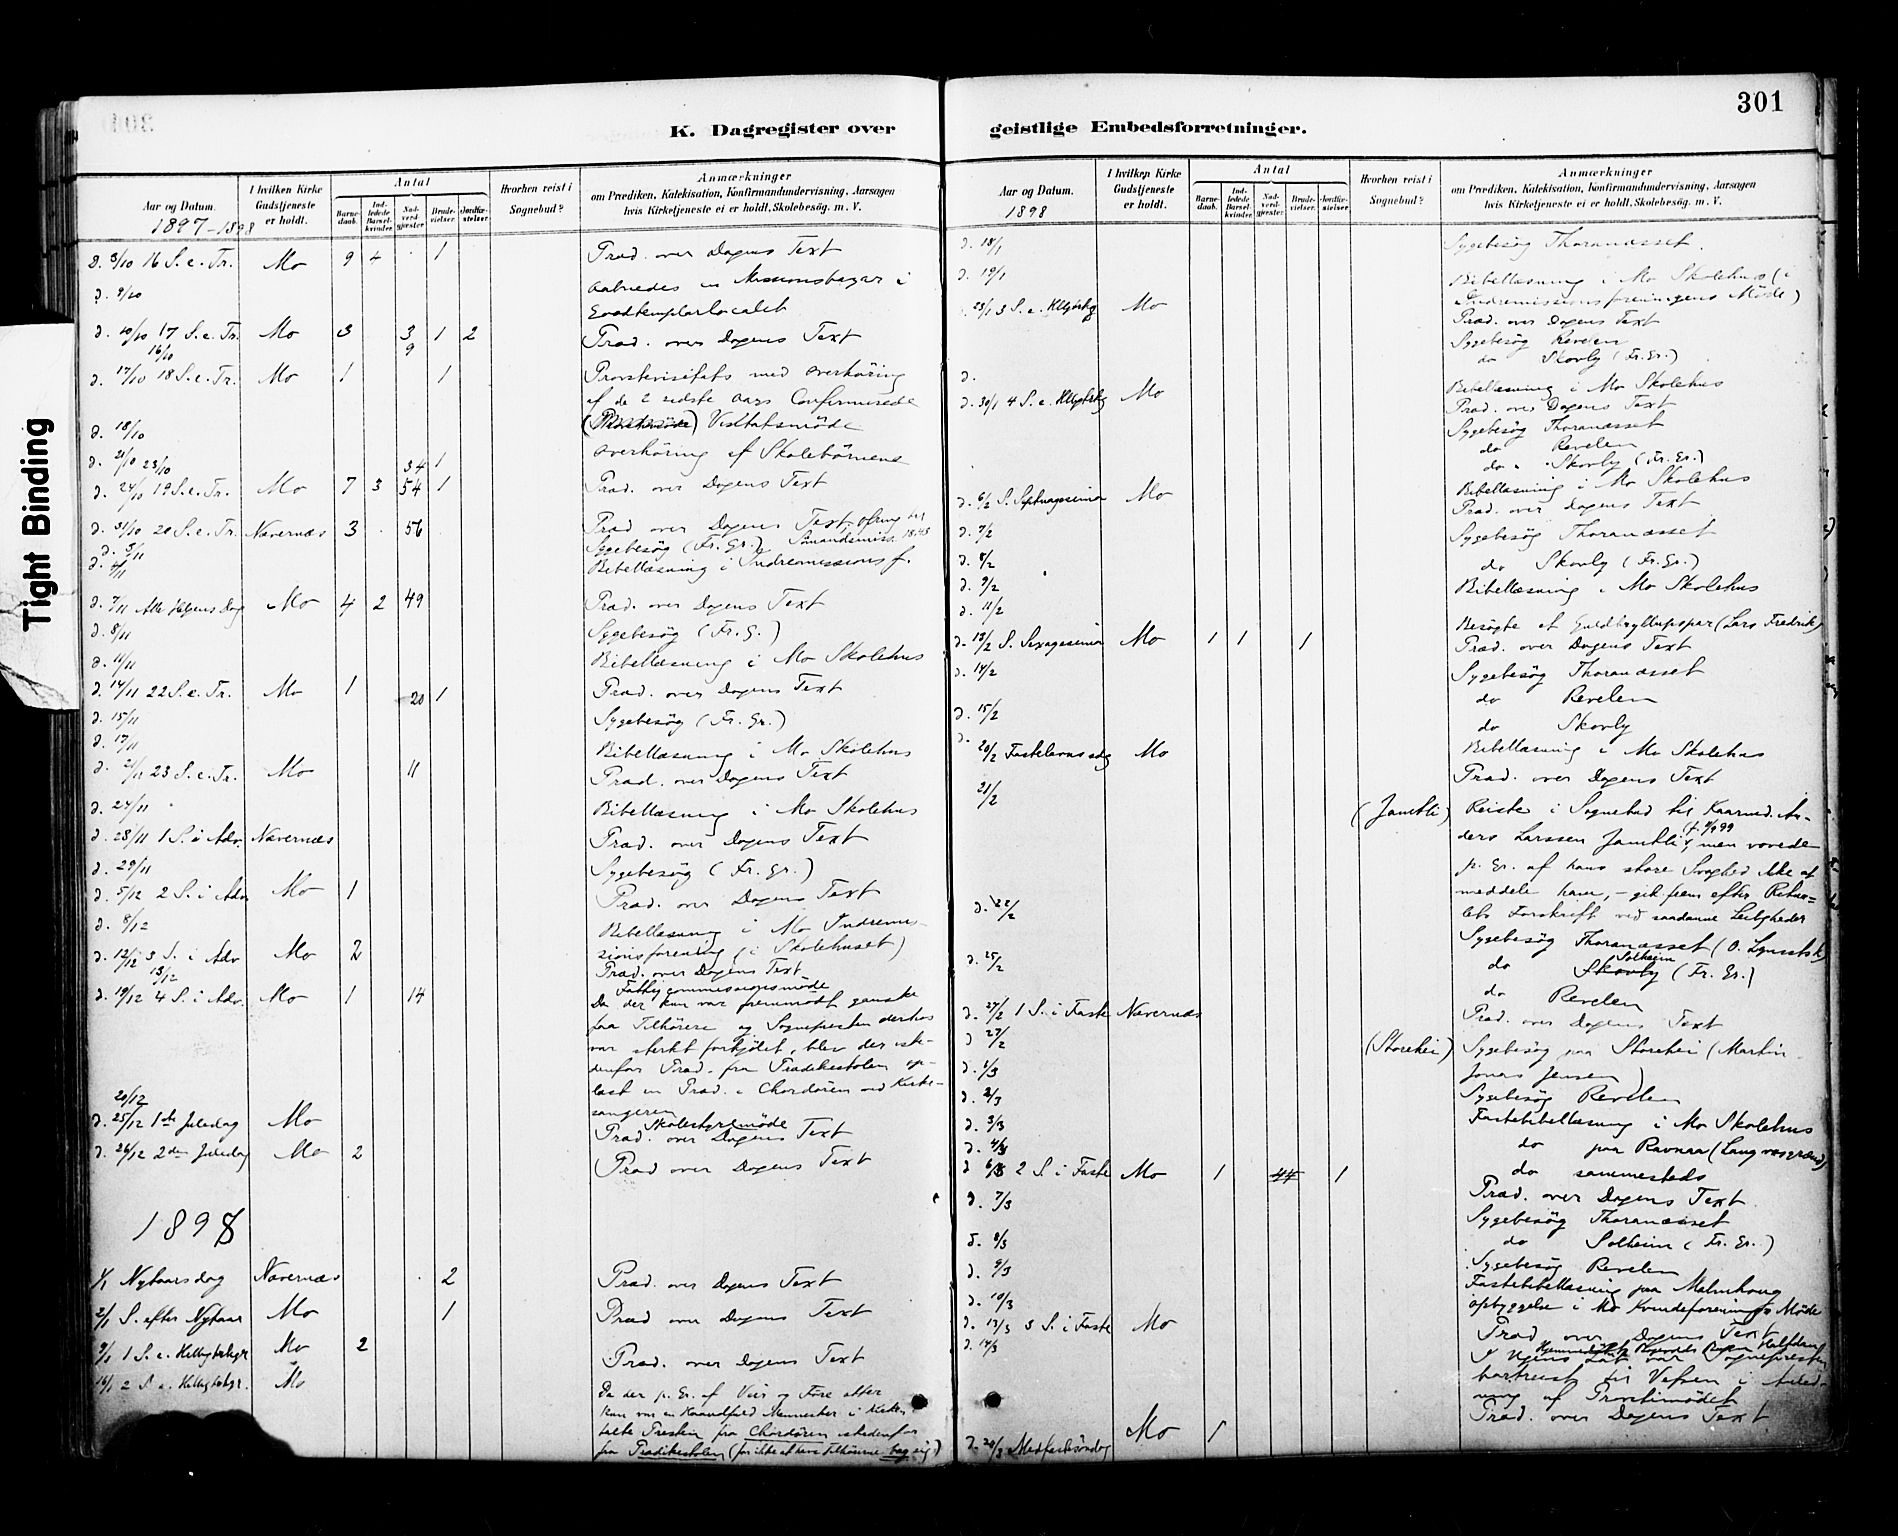 301
K. Dagregister over
geistlige Embedsforretninger.
Tight Binding
Aar og Datum.
1897-1898
I hvilken Kirke Gudstjeneste er holdt.
Antal
Barnedaab.
Indledede Barselkvinder.
Nadverdgjæster.
Brudevielser.
Jordfæstelser.
Hvorhen reist i Sognebud?
Anmærkninger
om Prædiken, Katekisation, Konfirmandundervisning, Aarsagen
hvis Kirketjeneste ei er holdt, Skolebesøg. m. V.
D. 3/10 16 S. e. Tr. Mo 9 4 1 Præd. over Dagens Text
d. 9/10 Aabnedes en Missionsbazar i
Goodtemplarlocalet
d. 10/10 17 S. e. Tr. Mo 3 3 1 2 Præd. over Dagens Text
16/10 9
d. 17/10 18 S. e. Tr. Mo 1 1 Provstevisitats med Overhøring
af de 2 sidste Aars Confirmerede
d. 18/10 Visitatsmøde
d. 21/10 23/10 34 1 Overhøring af Skolebørnene
d. 24/10 19 S. e. Tr. Mo 7 3 54 1 Præd. over Dagens Text
d. 31/10 20 S. e. Tr. Nævernæs 3 56 Præd over Dagens Text, ofring til
Sømandsmiss. 18,48
d. 3/11 Sygebesøg (Fr. Gr.)
d. 4/11 Bibellæsning i Indremissionsf.
d. 7/11 Alle Helgens Dag Mo 4 2 49 Præd. over Dagens Text
d. 8/11 Sygebesøg (Fr. G.)
d. 11/11 Bibellæsning i Mo Skolehus
d. 14/11 22 S. e. Tr. Mo 1 20 1 Præd. over Dagens Text
d. 15/11 Sygebesøg (Fr. Gr.)
d. 17/11 Bibellæsning i Mo Skolehus
d. 21/11 23 S. e. Tr. Mo 11 Præd. over Dagens Text
d. 24/11 Bibellæsning i Mo Skolehus
d. 28/11 1 S. i Adv. Nævernæs Præd. over Dagens Text
d. 29/11 Sygebesøg (Fr. Gr.)
d. 5/12 2 S. i Adv Mo 1 Præd. over Dagens Text
d. 8/12 Bibellæsning i Mo Indremis-
sionsforening (i Skolehuset)
d. 12/12 3 S. i Adv Mo 2 Præd. over Dagens Text
13/12 Fattigcommissionsmøde
d. 19/12 4 S. i Adv. Mo 1 14 Da der kun var fremmødt ganske
faa Tilhørere og Sognepresten derhos
var sterkt forkjølet, blev der iste-
denfor Præd. fra Prædikestolen op-
læst en Præd. i Chordøren ved Kirke-
sangeren
20/12 Skolestyremøde
d. 25/12 1ste Juledag Mo Præd. over Dagens Text
d. 26/12 2den Juledag Mo 2 Præd over Dagens Text
1898
1/1 Nytaarsdag Nævernæs 2 Præd. over Dagens Text
2/1 S. efter Nytaar Mo 1 Præd over Dagens Text
9/1 1 S. e. Helligtrekgr Mo 2 Præd. over Dagens Text
16/1 2 S. e. Helligtrekgr. Mo Da der p. Gr. af Veir og Føre atter
kun var en Haandfuld Mennesker i Kirken
talte Presten fra Chordøren istedenfor
fra Prædikestolen (for ikke at have Tilhørerne bag sig)
Aar og Datum.
1898
I hvilken Kirke Gudstjeneste er holdt.
Antal
Barnedaab.
Indledede Barselkvinder.
Nadverdgjæster.
Brudevielser.
Jordfæstelser.
Hvorhen reist i Sognebud?
Anmærkninger
om Prædiken, Katekisation, Konfirmandundervisning, Aarsagen
hvis Kirketjeneste ei er holdt, Skolebesøg. m. V.
d. 18/1 Sygebesøg Thoranæsset.
d. 19/1 Bibellæsning i Mo Skolehus (i
Indremissionsforeningens Møde)
23/1 3 S. e. Mo Præd. over Dagens Text
Sygebesøg Revelen
do Skovly (Fr. Gr.)
d. Bibellæsning i Mo Skolehus
d. 30/1 4 S. e. Mo Præd. over Dagens Text
Sygebesøg Thoranæsset
do Revelen
do Skovly (Fr. Gr.)
Bibellæsning i Mo Skolehus
d. 6/2 S. Septuagesima Mo Præd. over Dagens Text
d. 7/2 Sygebesøg Thoranæsset
d. 8/2 do Skovly (Fr. Gr.)
d. 9/2 Bibellæsning i Mo Skolehus
d. 11/2 Besøgte et Guldbryllupspar (Lars Fredrik)
d. 13/2 S. Sexagesima Mo 1 1 1 Præd. over Dagens Text
d. 14/2 Sygebesøg Thoranæsset
do Revelen
d. 15/2 do Skovly
d. Bibellæsning i Mo Skolehus
20/2 Fastelavnssdg Mo Præd. over Dagens Text
21/2 (Jamtli) Reiste i Sognebud til Kaarmd. An-
ders Larssen Jamtli, men vovede
p. Gr. af hans store Svaghed ikke at
meddele ham, - gik frem efter Ritua-
lets Forskrift ved saadanne Leiligheder
d. 22/2 Sygebesøg Thoranæsset
do Solheim Skovly (Fr. Gr.)
d. 25/2 do Revelen
d. 27/2 1 S. i Faste Nævernæs Præd. over Dagens Text
d 27/2 (Storehei) Sygebesøg paa Storehei (Martin
Jonas Jensen)
d. 1/3 Sygebesøg Revelen
d. 2/3 Fastebibellæsning i Mo Skolehus
d. 3/3 do paa Ravnaa
d. 4/3 do sammesteds
d 6/3 2 S. i Faste Mo 1 44 1 Præd. over Dagens Text
d. 7/3 Sygebesøg Thoranæsset
d. 8/3 do Solheim (Fr. Gr.)
d. 9/3 Sygebesøg Revelen
Fastebibellæsning paa Malmhaug
d. 10/3 Opbyggelse i Mo Kvindeforenings Møde
d. 13/3 3 S. i Faste Mo Præd over Dagens Text
d. 14/3
I Ugens Løb var Sognepresten
bortreist til Vefsen i Anled-
ning af Provstimødet
d. 20/3 Midfastesøndag Mo 1 Præd. over Dagens Text